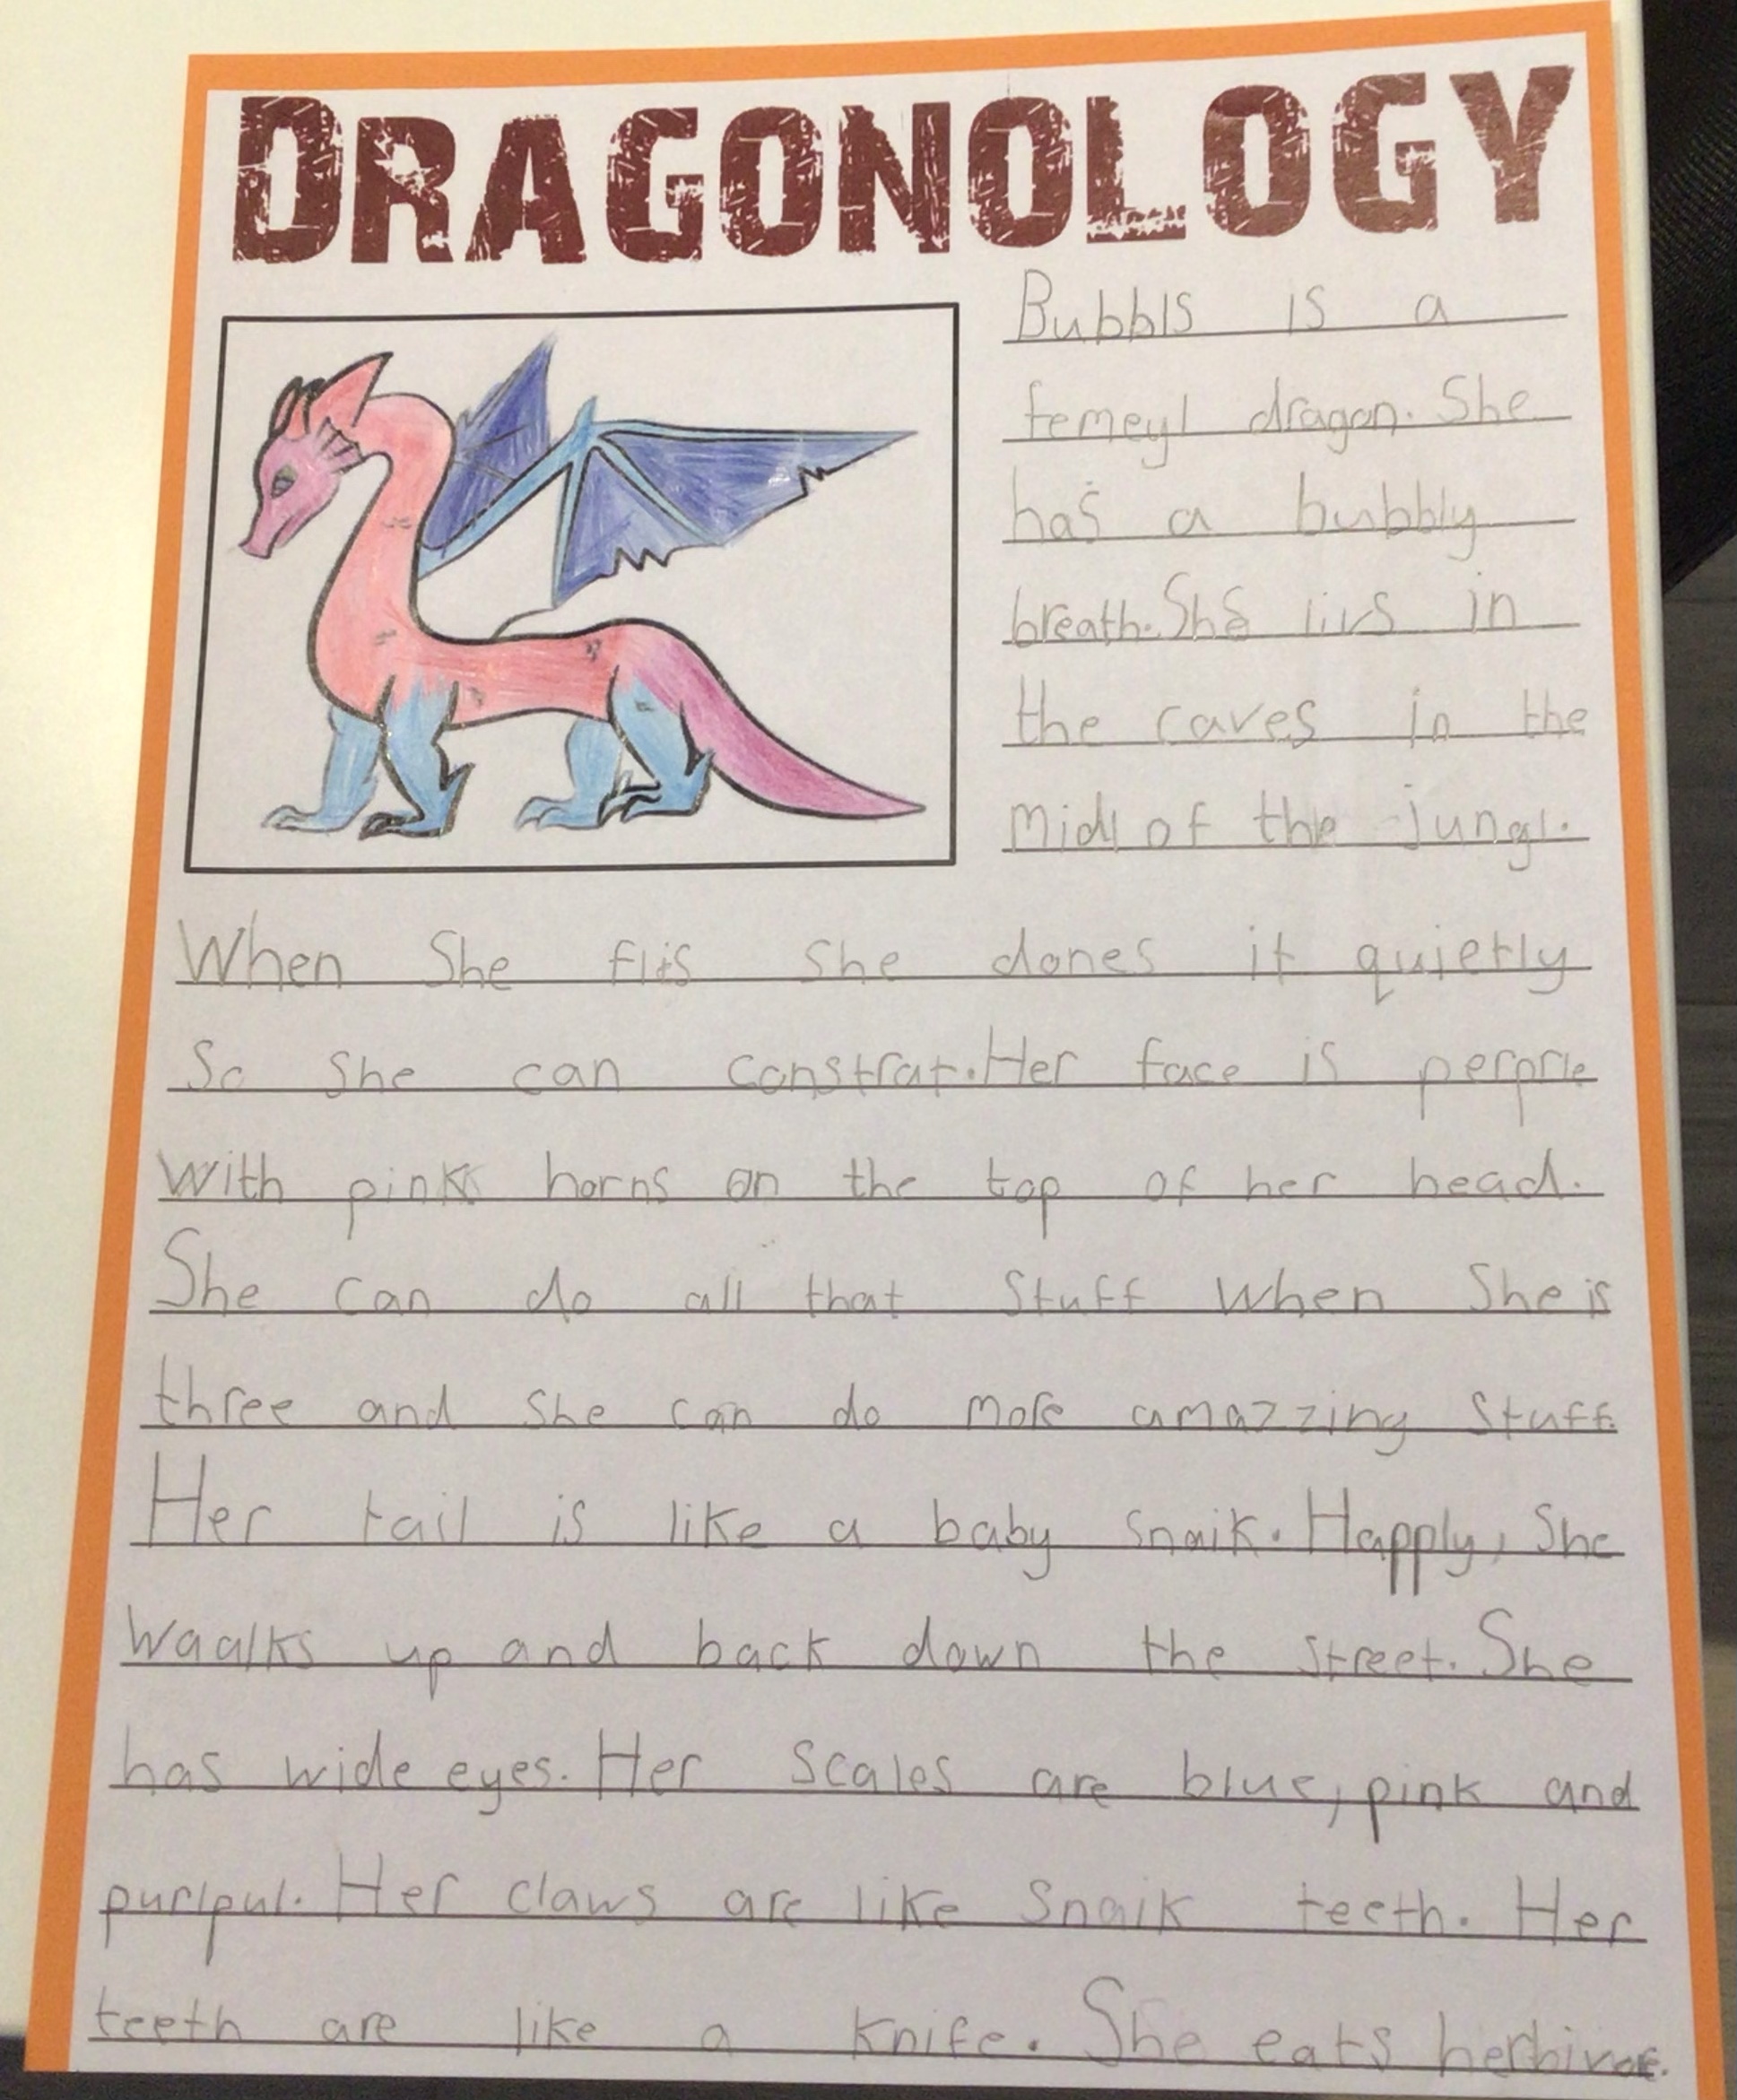 DRAGONOLOGY
Bubbls is a
femeyl dragon. She
has a bubbly
breath. She livs in
the caves in the
midl of the jungl.
When She flis she dones it quietly
So she can constrat. Her face is perprle
with pink horns on the top of her head.
She can do all that Stuff when She is
three and she can do more amazzing stuff.
Her tail is like a baby snaik. Happly, She
waalks up and back down the street. She
has wide eyes. Her scales are blue, pink and
purlpul. Her claws are like snaik teeth. Her
teeth are like a knife. She eats herbivore.